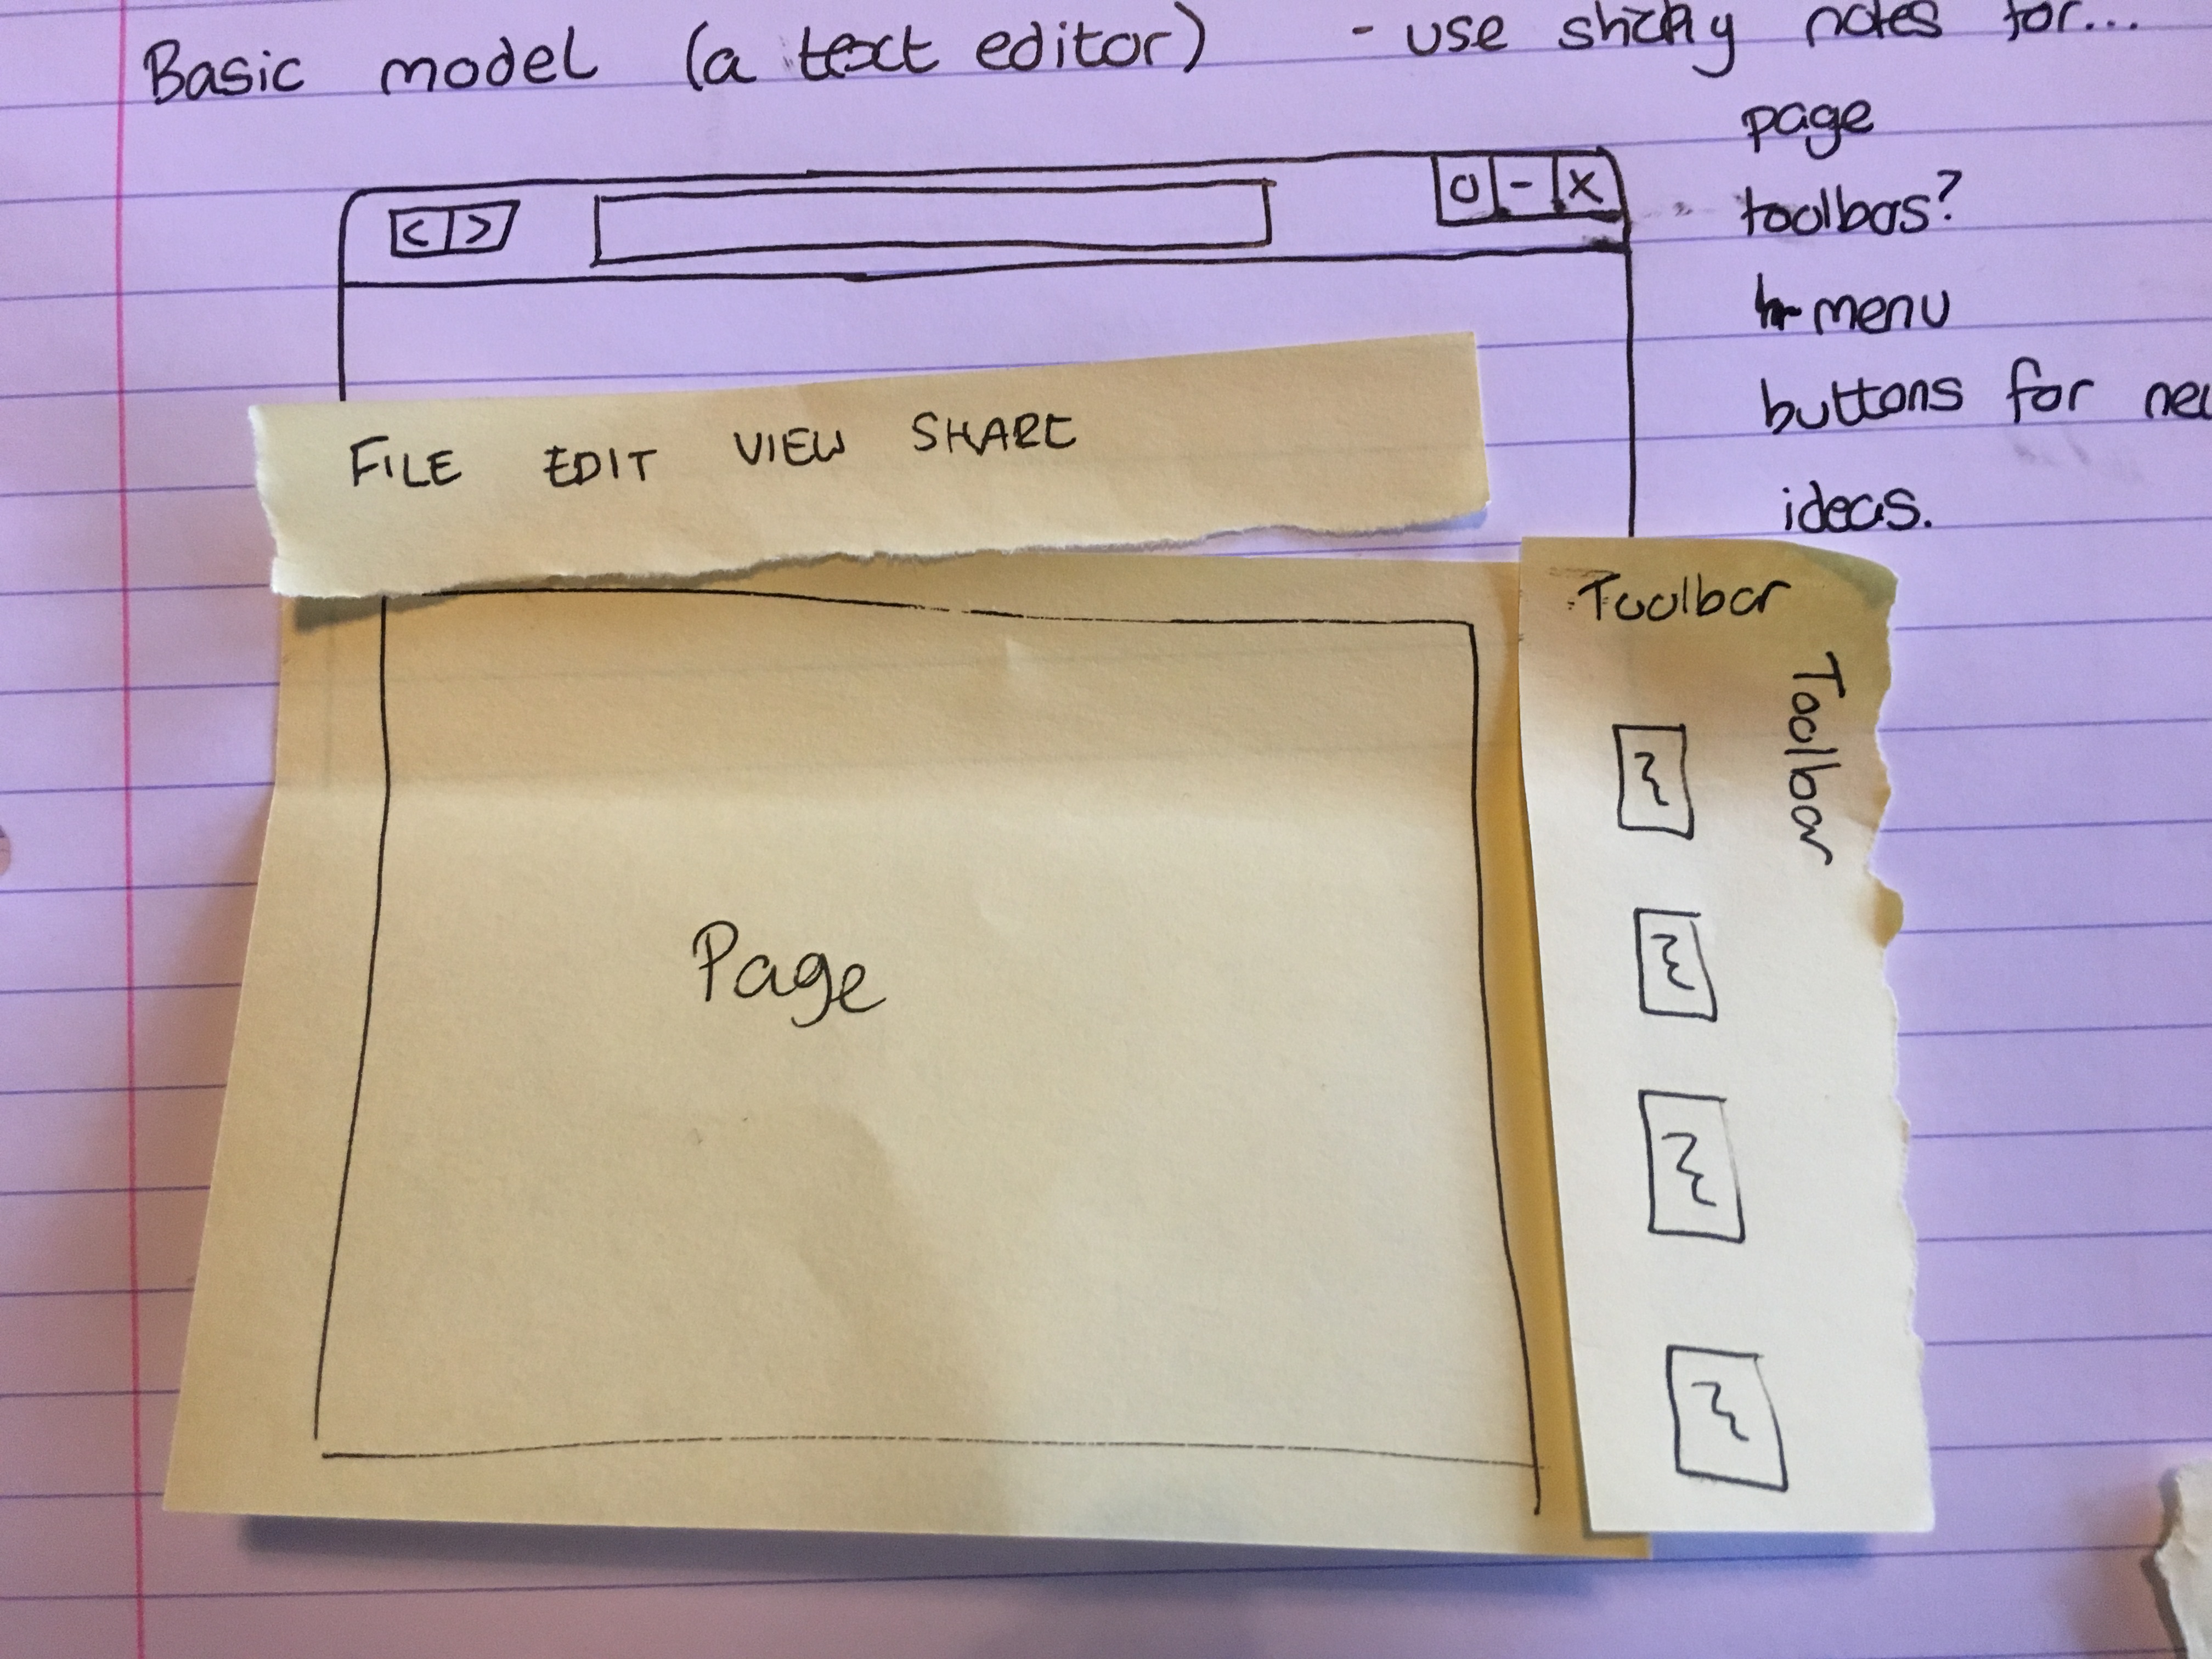 Basic model (a text editor) - use sticky notes for...
page
toolbars?
menu
buttons for new
ideas.
< >
O - X
FILE EDIT VIEW SHARE
Page
Toolbar
Toolbar